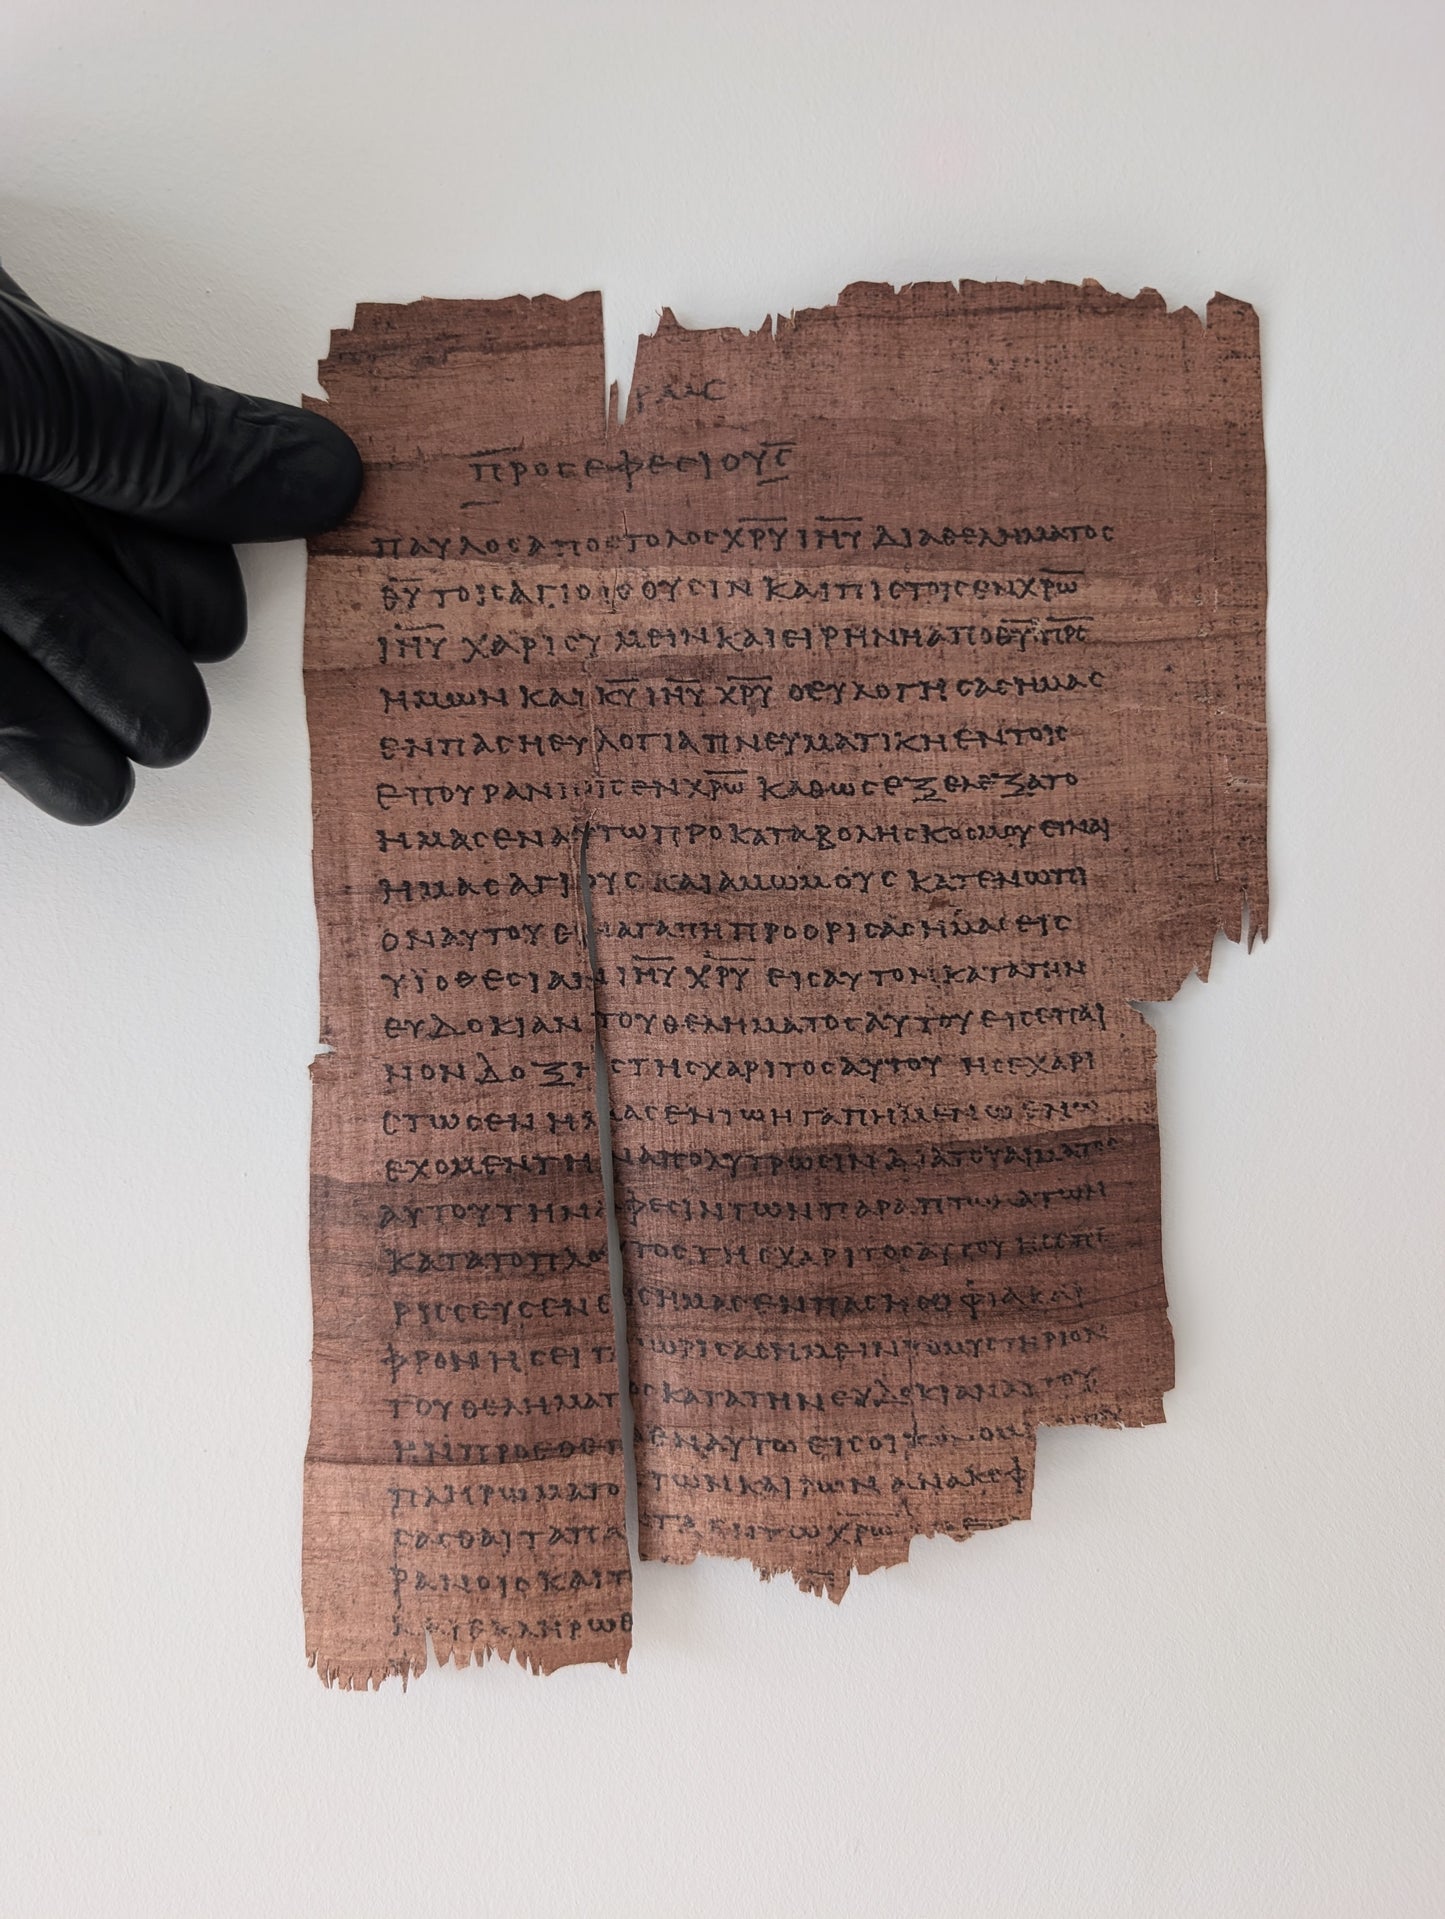 ΡΜϚ
ΠΡΟСΕΦΕСΙΟΥС
ΠΑΥΛΟСΑΠΟСΤΟΛΟСΧ̅Ρ̅Υ̅ Ι̅Η̅Υ̅ ΔΙΑΘΕΛΗΜΑΤΟС
Θ̅Υ̅ ΤΟΙСΑΓΙΟΙСΟΥСΙΝ ΚΑΙΠΙСΤΟΙСΕΝΧ̅Ρ̅Ω̅
Ι̅Η̅Υ̅ ΧΑΡΙСΥΜΕΙΝΚΑΙΕΙΡΗΝΗΑΠΟΘ̅Υ̅ Π̅Ρ̅С̅
ΗΜΩΝ ΚΑΙ Κ̅Υ̅ Ι̅Η̅Υ̅ Χ̅Ρ̅Υ̅ ΟΕΥΛΟΓΗСΑСΗΜΑС
ΕΝΠΑСΗΕΥΛΟΓΙΑΠΝΕΥΜΑΤΙΚΗΕΝΤΟΙС
ΕΠΟΥΡΑΝΙΟΙСΕΝΧ̅Ρ̅Ω̅ ΚΑΘΩСΕΞΕΛΕΞΑΤΟ
ΗΜΑСΕΝΑΥΤΩΠΡΟΚΑΤΑΒΟΛΗСΚΟСΜΟΥΕΙΝΑΙ
ΗΜΑСΑΓΙΟΥС ΚΑΙΑΜΩΜΟΥС ΚΑΤΕΝΩΠΙ
ΟΝΑΥΤΟΥΕΝΑΓΑΠΗΠΡΟΟΡΙСΑСΗΜΑСΕΙС
ΥΙΟΘΕСΙΑΝΔΙ Ι̅Η̅Υ̅ Χ̅Ρ̅Υ̅ ΕΙСΑΥΤΟΝΚΑΤΑΤΗΝ
ΕΥΔΟΚΙΑΝΤΟΥΘΕΛΗΜΑΤΟСΑΥΤΟΥΕΙСΕΠΑΙ
ΝΟΝΔΟΞΗСΤΗСΧΑΡΙΤΟСΑΥΤΟΥ ΗСΕΧΑΡΙ
СΤΩСΕΝΗΜΑСΕΝΤΩΗΓΑΠΗΜΕΝΩΕΝΩ
ΕΧΟΜΕΝΤΗΝΑΠΟΛΥΤΡΩСΙΝΔΙΑΤΟΥΑΙΜΑΤΟС
ΑΥΤΟΥΤΗΝΑΦΕСΙΝΤΩΝΠΑΡΑΠΤΩΜΑΤΩΝ
ΚΑΤΑΤΟΠΛΟΥΤΟСΤΗСΧΑΡΙΤΟСΑΥΤΟΥΗСΕΠΕ
ΡΙССΕΥСΕΝΕΙСΗΜΑСΕΝΠΑСΗСΟΦΙΑΚΑΙ
ΦΡΟΝΗСΕΙΓΝΩΡΙСΑСΗΜΕΙΝΤΟΜΥСΤΗΡΙΟΝ
ΤΟΥΘΕΛΗΜΑΤΟСΚΑΤΑΤΗΝΕΥΔΟΚΙΑΝΑΥΤΟΥ
ΗΝΠΡΟΕΘΕΤΟΕΝΑΥΤΩΕΙСΟΙΚΟΝΟΜΙ
ΠΛΗΡΩΜΑΤΟΣΤΩΝΚΑΙΡΩΝΑΝΑΚΕΦ
СΑСΘΑΙΤΑΠΑΝΤΑΕΝΤΩΧ̅Ρ̅Ω̅
ΡΑΝΟΙСΚΑΙΤ
ΚΑΙΕΚΛΗΡΩΘ